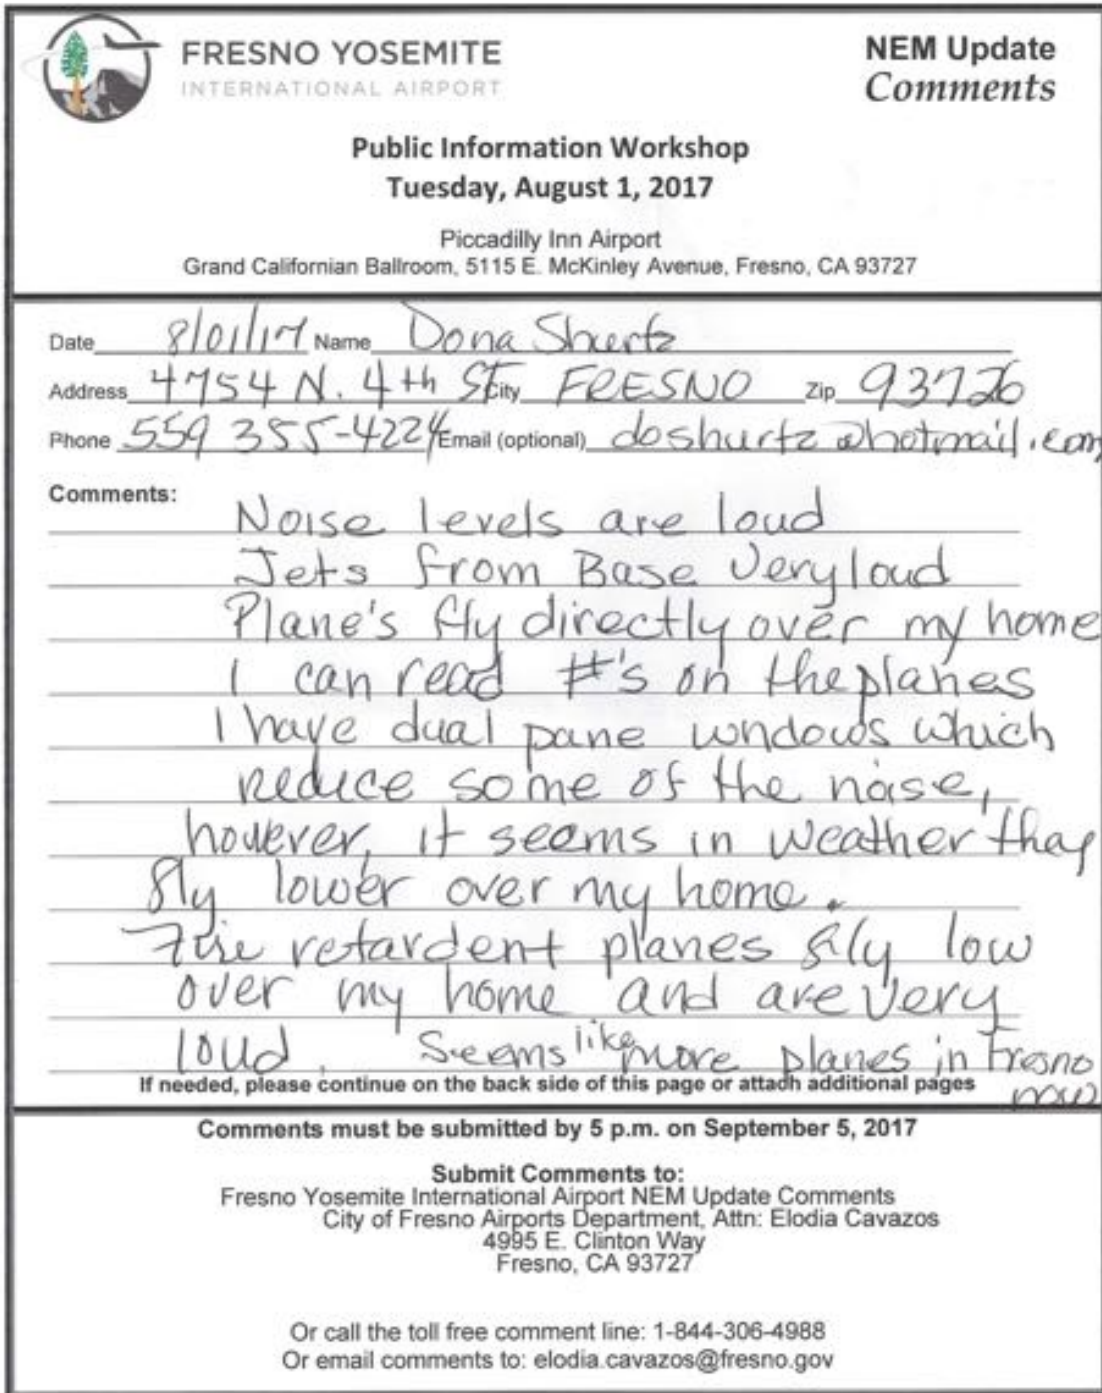 FRESNO YOSEMITE
INTERNATIONAL AIRPORT
NEM Update
Comments
Public Information Workshop
Tuesday, August 1, 2017
Piccadilly Inn Airport
Grand Californian Ballroom, 5115 E. McKinley Avenue, Fresno, CA 93727
Date 8/01/17 Name Dona Shurtz
Address 4754 N. 4th St City FRESNO Zip 93726
Phone 559 355-4224 Email (optional) doshurtz@hotmail.com
Comments:
Noise levels are loud
Jets from Base Very loud
Plane's fly directly over my home
I can read #'s on the planes
I have dual pane wndows which
reduce some of the noise,
however, it seems in weather they
fly lower over my home.
Fire retardent planes fly low
over my home and are very
loud. Seems like more planes in Fresno
now
If needed, please continue on the back side of this page or attach additional pages
Comments must be submitted by 5 p.m. on September 5, 2017
Submit Comments to:
Fresno Yosemite International Airport NEM Update Comments
City of Fresno Airports Department, Attn: Elodia Cavazos
4995 E. Clinton Way
Fresno, CA 93727
Or call the toll free comment line: 1-844-306-4988
Or email comments to: elodia.cavazos@fresno.gov